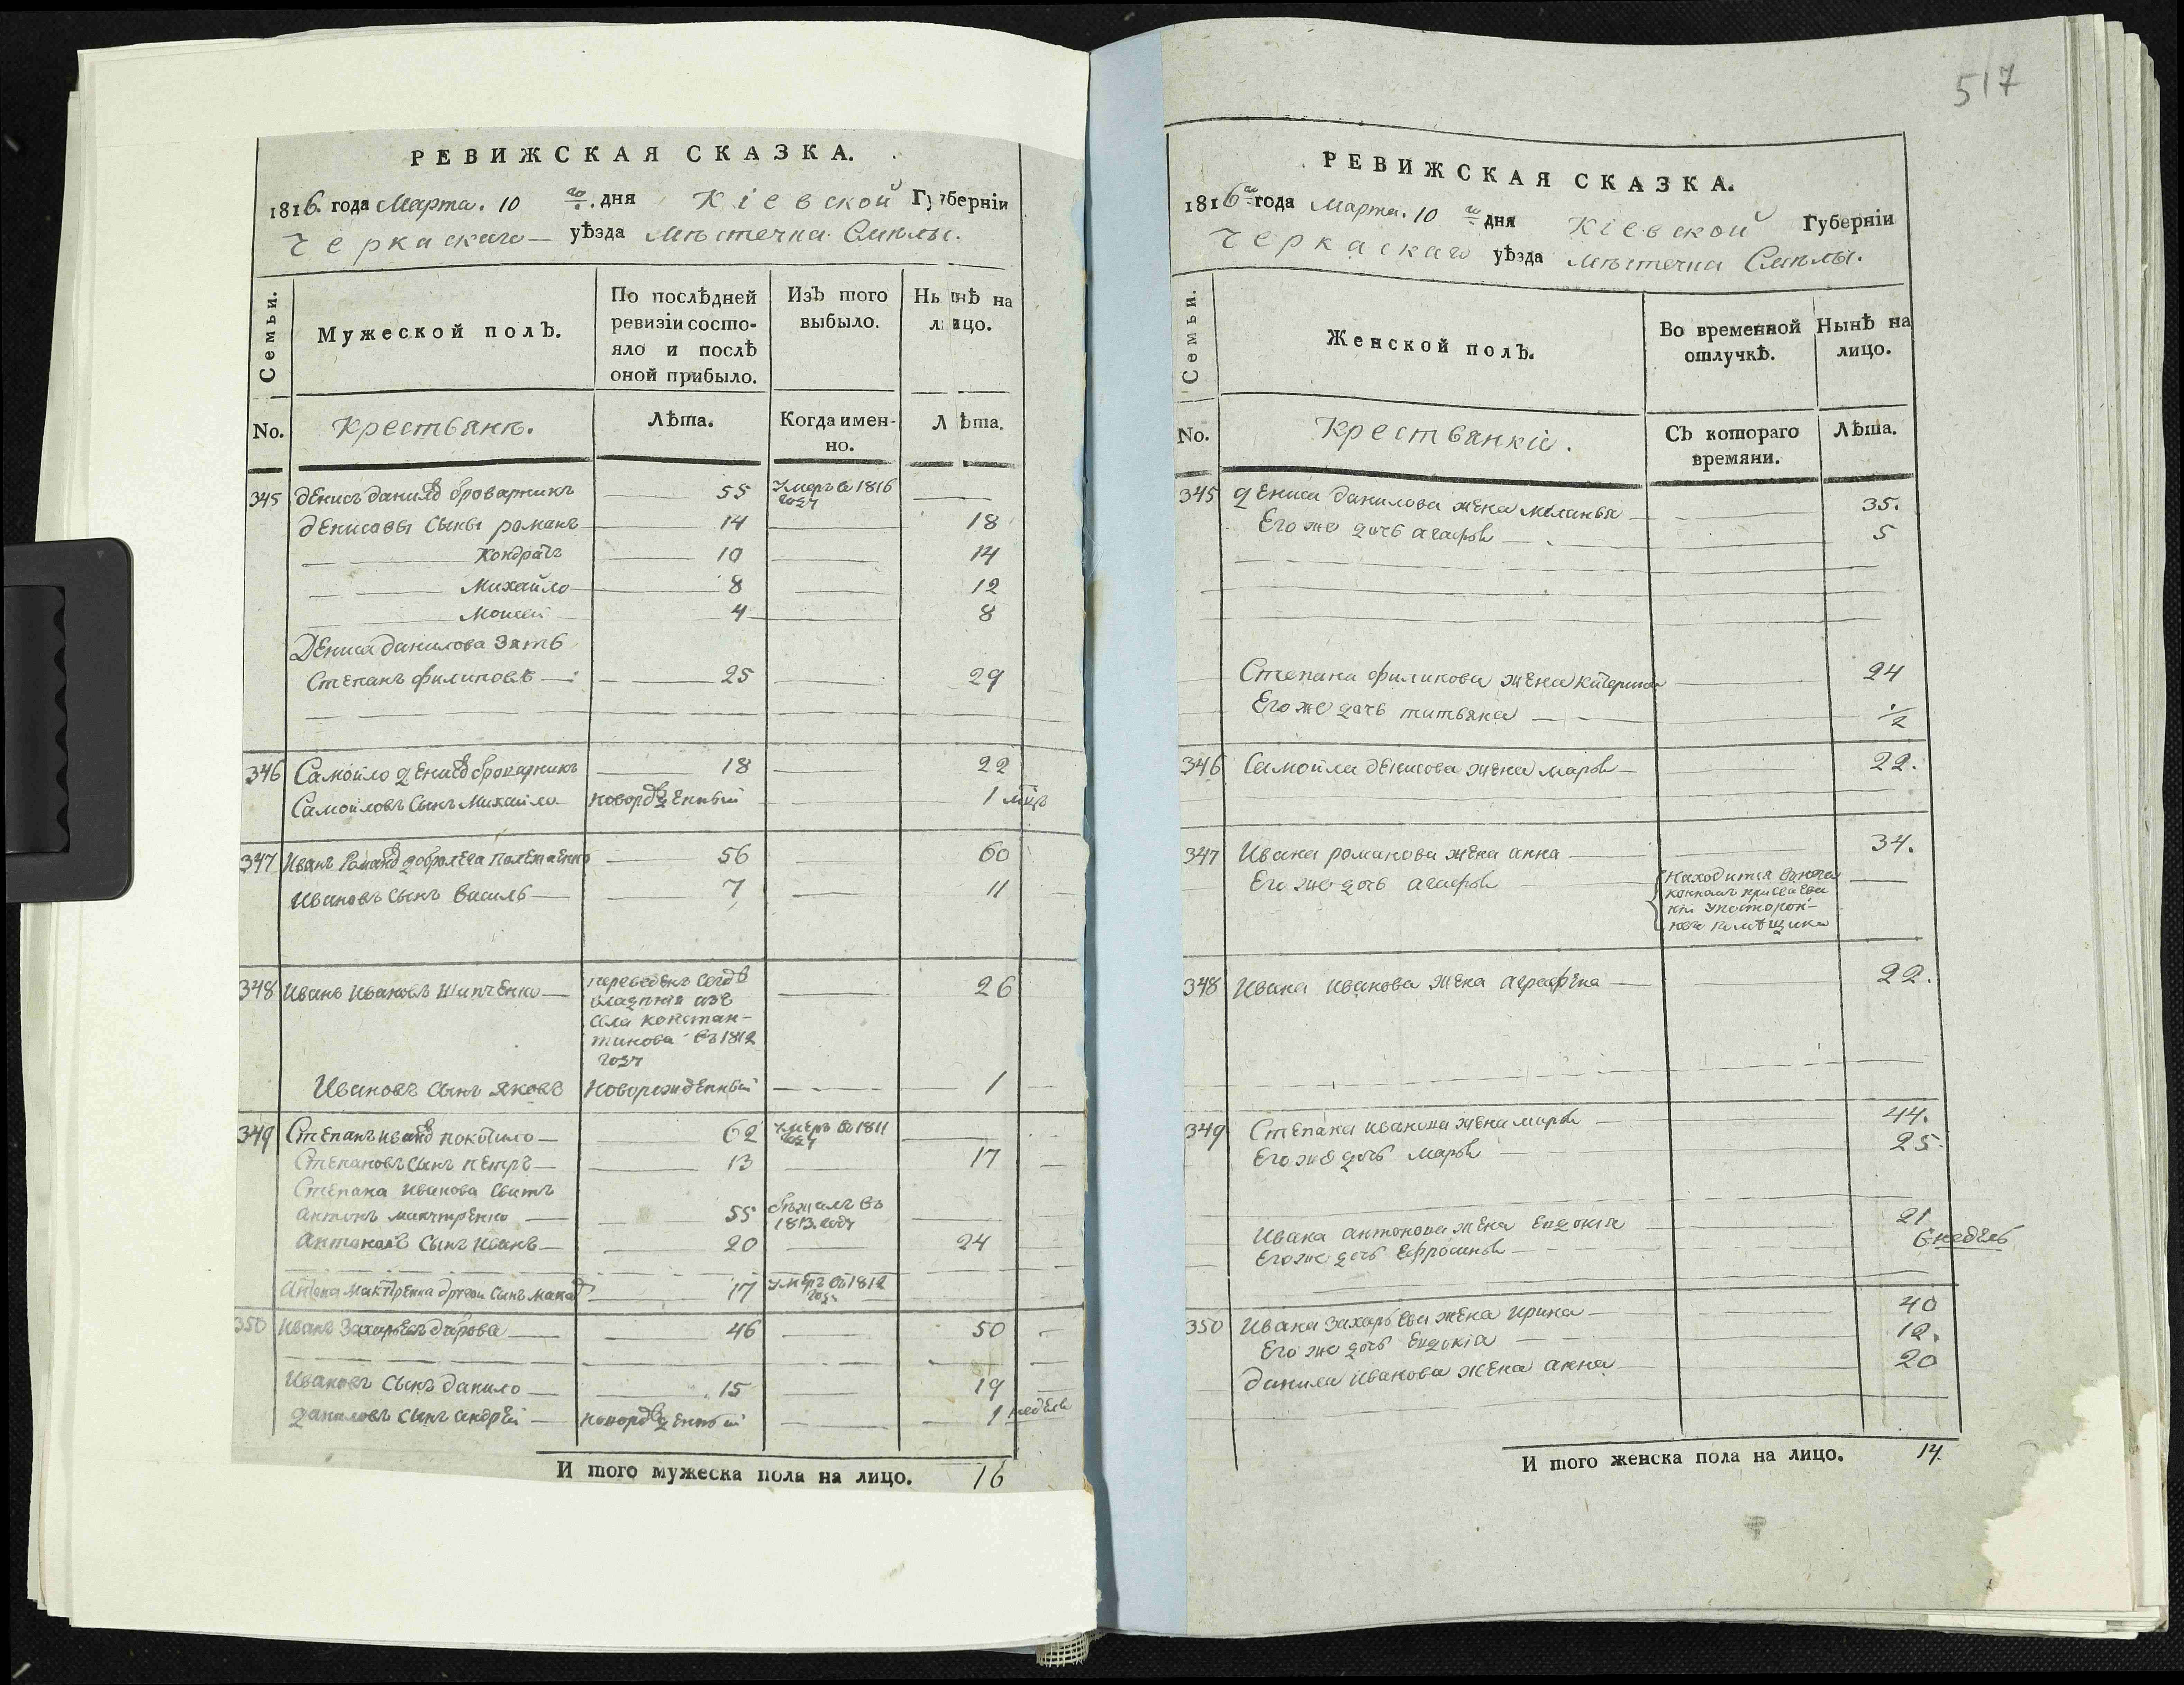 517
РЕВИЖСКАЯ СКАЗКА.
1816. года Марта. 10 го. дня Кіевской Губерніи
Черкаскаго уѣзда Мѣстечка Смѣлы.
Семьи.
Мужеской полЪ.
По послѣдней ревизіи состо-
яло и послѣ
оной прибыло.
ИзЪ того выбыло.
Нынѣ на лицо.
No.
Крестьянѣ.
Лѣта.
Когда имен-
но.
Лѣта.
345 Денисъ Данилов броварникъ 55 Умеръ в 1816 году
Денисовы сыны романъ 14 18
Кондратъ 10 14
Михайло 8 12
Моисей 4 8
Дениса Данилова Зять
Степанъ филиповъ 25 29
346 Самойло Денисов броварникъ 18 22
Самойловъ сынъ Михайло новорожденный 1 мцъ
347 Иванъ Романов 56 60
Ивановъ сынъ Василь 7 11
348 Иванъ Ивановъ Шипченко 26
переведенъ
владѣнія изъ
села констан-
тинова въ 1812
году
Ивановъ сынъ яковъ Новорожденный 1
349 Степанъ иванов покотило 62 умеръ в 1811 году
Степановъ сынъ петръ 13 17
Степана иванова сватъ
антонъ 55 бѣжалъ въ 1813. году
антоновъ сынъ иванъ 20 24
другой сынъ 17 умеръ в 1812 году
350 иванъ Захарьевъ 46 50
Ивановъ сынъ данило 15 19
даниловъ сынъ андрей новорожденный 1 неделя
И того мужеска пола на лицо. 16
РЕВИЖСКАЯ СКАЗКА.
1816го года Марта. 10 го дня Кіевской Губерніи
Черкаскаго уѣзда Мѣстечка Смѣлы.
Семьи.
Женской полЪ.
Во временной отлучкѣ.
Нынѣ на лицо.
No.
Крестьянкіи.
СЪ котораго
времяни.
Лѣта.
345 Дениса данилова жена меланья 35.
Его же дочь агафья 5
Степана филипова жена катерина 24
Его же дочь татьяна 1/2
346 Самойла денисова жена марья 22.
347 Ивана романова жена анна 34.
Его же дочь агафья
Находится
348 Ивана иванова жена аграфена 22.
349 Степана иванова жена марья 44.
Его же дочь марья 25
Ивана антонова жена евдокія 21
Его же дочь ефросинья 6 недель
350 Ивана захарьева жена ирина 40
Его же дочь евдокія 12.
данила иванова жена анна 20
И того женска пола на лицо. 14.